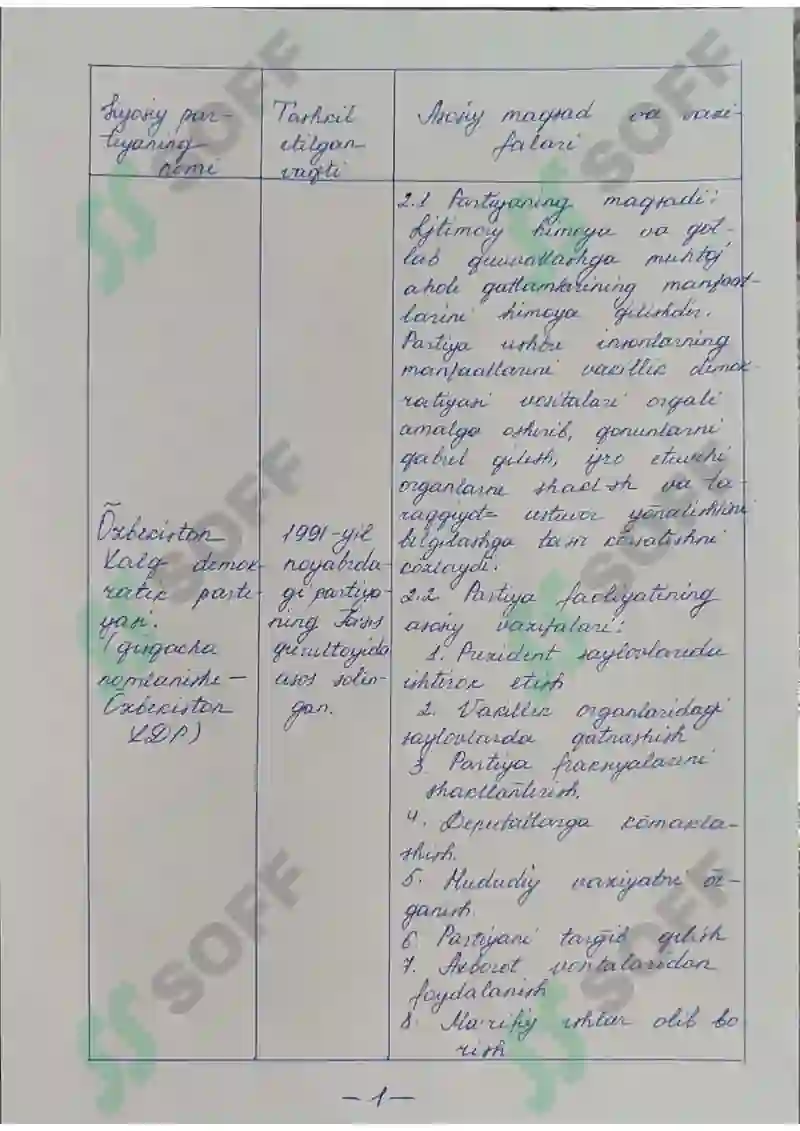 Siyosiy par-
tiyaning
nomi
Tashkil
etilgan
vaqti
Asosiy maqsad va vazi-
falari
Õzbekiston
Xalq demok-
ratik parti-
yasi.
(qisqacha
nomlanishi —
Õzbekiston
XDP)
1991-yil
noyabrda-
gi partiya-
ning Ta'sis
qurultoyida
asos solin-
gan.
2.1 Partiyaning maqsadi:
Ijtimoiy himoya va qol-
lab quvvatlashga muhtoj
aholi qatlamlarining manfaat-
larini himoya qilishdir.
Partiya ushbu insonlarning
manfaatlarini vakillik demok-
ratiyasi vositalari orqali
amalga oshirib, qonunlarni
qabul qilish, ijro etuvchi
organlarni shakl-sh va ta-
raqqiyot= ustuvor yõnalishini
bilgilashga ta'sir kõrsatishni
kõzlaydi.
2.2 Partiya faoliyatining
asosiy vazifalari:
1. Prezident saylovlarida
ishtirok etish
2. Vakillik organlaridagi
saylovlarda qatnashish
3. Partiya fraksiyalarini
shakllantirish.
4. Deputatlarga kõmakla-
shish.
5. Hududiy vaziyatni õr-
ganish.
6. Partiyani targ'ib qilish
7. Axborot vositalaridan
foydalanish
8. Ma'rifiy ishlar olib bo
rish
— 1 —
SOFF
SOFF
SOFF
SOFF
SOFF
SOFF